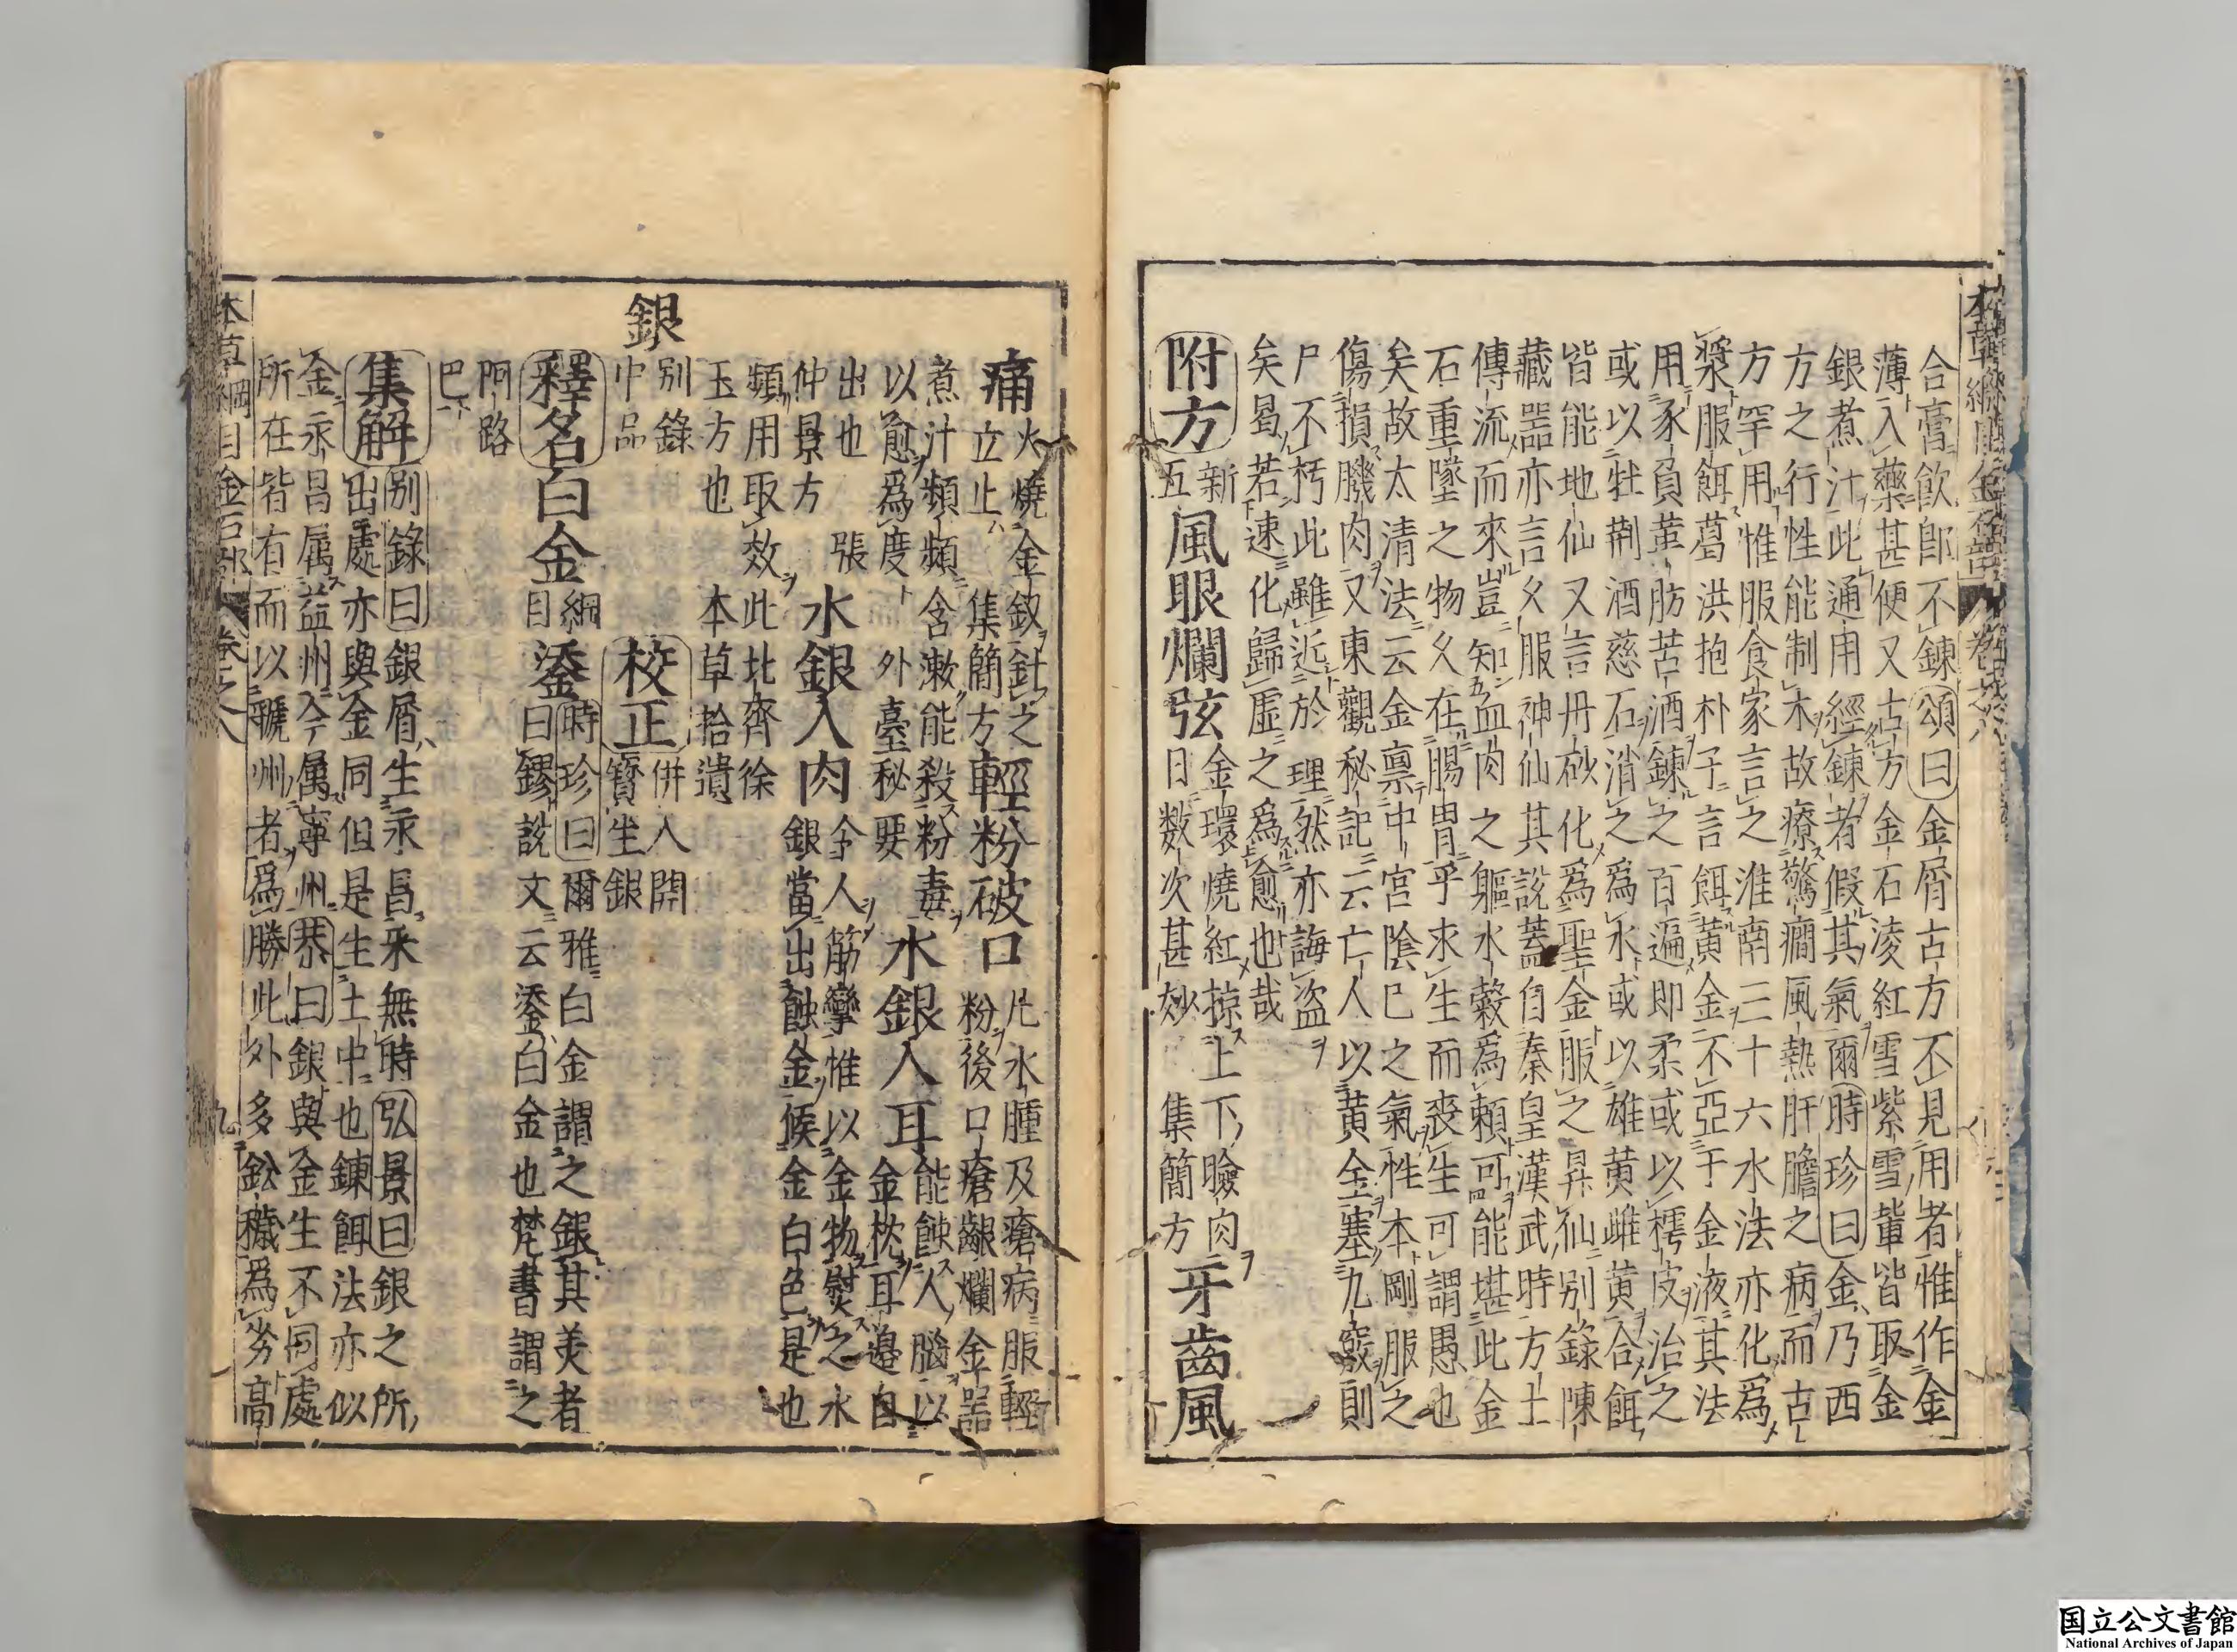 本草綱目金石部 卷之八
合膏飲即不鍊頌曰金屑古方不見用者惟作金
薄入藥甚便又古方金石淩紅雪紫雪輩皆取金
銀煮汁此通用經鍊者假其氣爾時珍曰金乃西
方之行性能制木故療驚癎風熱肝膽之病而古
方罕用惟服食家言之淮南三十六水法亦化爲
漿服餌葛洪抱朴子言餌黃金不亞于金液其法
用豕負革肪苦酒鍊之百遍即柔或以樗皮治之
或以牡荆酒慈石消之爲水或以雄黃雌黃合餌
皆能地仙又言丹砂化爲聖金服之昇仙別錄陳
藏噐亦言久服神仙其說蓋自秦皇漢武時方士
傳流而來豈知血肉之軀水穀爲賴可能堪此金
石重墜之物久在腸胃乎求生而丧生可謂愚也
矣故太清法云金禀中宫陰巳之氣性本剛服之
傷損肌肉又東觀秘記云亡人以黃金塞九竅則
尸不朽此雖近於理然亦誨盜
矣曷若速化歸虛之爲愈也哉
附方 新五 風眼爛弦 金環燒紅掠上下瞼肉日數次甚妙 集簡方 牙齒風
痛 火燒金釵針之立止 集簡方 輕粉破口 凡水腫及瘡病服輕粉後口瘡齦爛金噐
煮汁頻頻含漱能殺粉毒以愈爲度 外臺秘要 水銀入耳 能蝕人腦以金枕耳邉自
出也 張仲景方 水銀入肉 令人筋攣惟以金物熨之水銀當出蝕金候金白色是也
頻用取效此北齊徐玉方也 本草拾遺
銀 別錄中品 校正 併入開寶生銀
釋名 白金 綱目 鋈 時珍曰爾雅白金謂之銀其美者曰鏐說文云鋈白金也梵書謂之
阿路巴
集解 別錄曰銀屑生永昌采無時弘景曰銀之所
出處亦與金同但是生土中也鍊餌法亦似
金永昌属益州今属寧州恭曰銀與金生不同處
所在皆有而以虢州者爲勝此外多鈆穢爲劣高
本草綱目金石部 卷之八 九
国立公文書館
National Archives of Japan